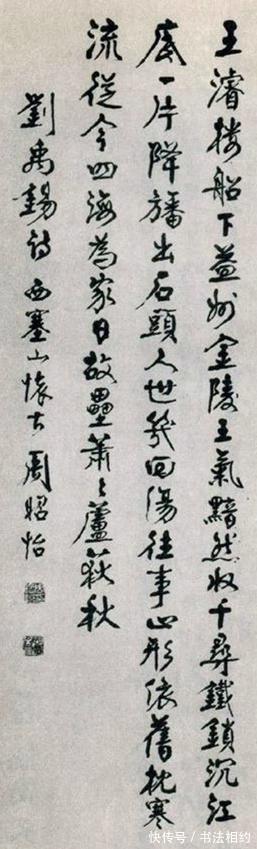 王濬楼船下益州金陵王氣黯然收千尋鐵鎖沉江
底一片降旛出石頭人世幾回傷往事山形依舊枕寒
流從今四海為家日故壘蕭々蘆荻秋
劉禹錫詩西塞山懷古周昭怡
快传号/书法相约